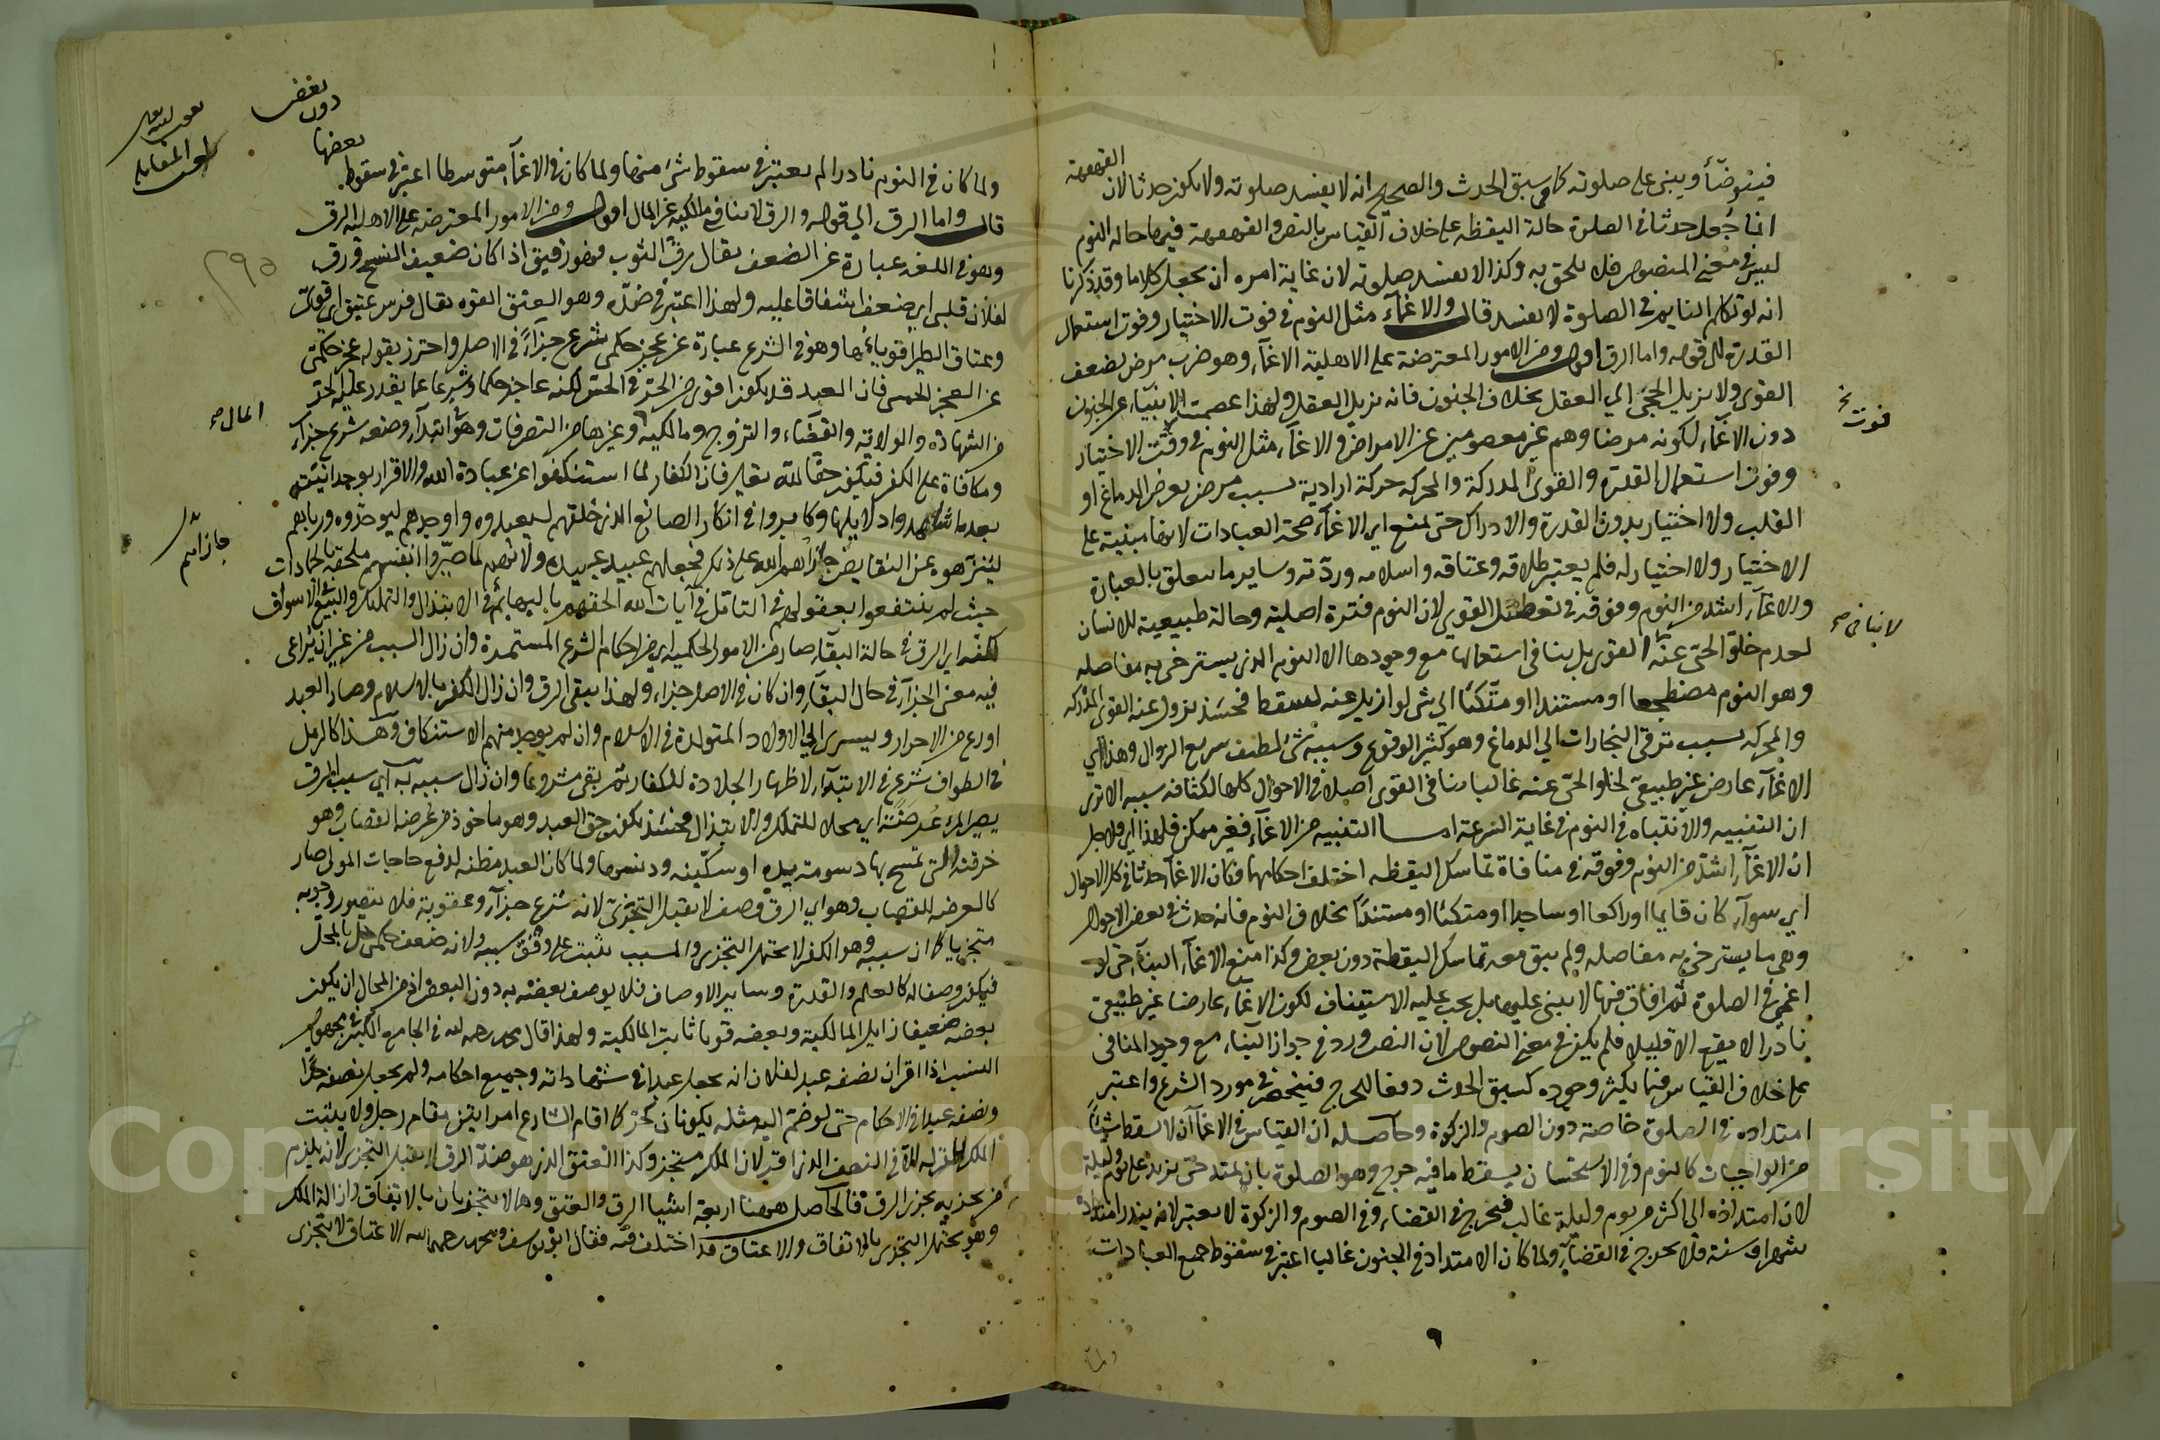 فيتوضأ ويبنى على صلوته كما فى سبق الحدث والصحيح انه لا يفسد صلوته ولا يكون حدثا لان القهقهة
انما جعل حدثا فى الصلوة حالة اليقظة على خلاف القياس بالنص والقهقهة فيها حالة النوم
ليس فى معنى المنصوص فلا يلحق به وكذا لا يفسد صلوته لان غاية امره ان يجعل كلاما وقد ذكرنا
انه لو تكلم النايم فى الصلوة لا يفسد قال والاغمآء مثل النوم فى فوت الاختيار وفوت استعمال
القدرة الى قوله واما الرق اقول ومن الامور المعترضة على الاهلية الاغمآء وهو ضرب مرض يضعف
القوى ولا يزيل الحجى اي العقل بخلاف الجنون فانه يزيل العقل ولهذا عصمت الانبيآء عن الجنون
دون الاغمآء لكونه مرضا وهم غير معصومين عن الامراض والاغمآء مثل النوم فى وقت الاختيار
فوت
وفوت استعمال القدرة والقوى المدركة والمحركة حركة ارادية بسبب مرض يعرض الدماغ او
القلب ولا اختيار بدون القدرة والادراك حتى يمنع اى الاغمآء صحة العبادات لانها مبنية على
الاختيار ولا اختيار له فلم يعتبر طلاقه وعتاقه واسلامه وردّته وساير ما يتعلق بالعبارة
والاغمآء اشد من النوم وفوقه فى تعطيل القوى لان النوم فترة اصلية وحالة طبيعية للانسان
لا ينافى صح
لعدم خلو الحى عنه القوى بل ينافى استعمالها مع وجودها الا النوم الذى يسترخى به مفاصله
وهو النوم مضطجعا او مستندا او متكئا الى شى لو ازيل عنه لسقط فحينئذ يزول عنه القوى المدركة
والمحركة بسبب ترقى البخارات الى الدماغ وهو كثير الوقوع وسببه شى لطيف سريع الزوال وهذا اي
الاغمآء عارض غير طبيعى لخلو الحى عنه غالبا ينافى القوى اصلا فى الاحوال كلها لكثافة سببه الا ترى
ان التنبيه والانتباه فى النوم فى غاية السرعة اما التنبيه من الاغمآء فغير ممكن فلهذا اي ولاجل
ان الاغمآء اشد من النوم وفوقه فى منافاة تماسك اليقظة اختلف احكامها فكان الاغمآء حدثا فى كل الاحوال
اي سوآء كان قايما او راكعا او ساجدا او متكئا او مستندا بخلاف النوم فانه حدث فى بعض الاحوال
وهى ما يسترخى به مفاصله ولم يبق معه تماسك اليقظة دون بعض وكذا منع الاغمآء البنآء حتى لو
اغمى فى الصلوة ثم افاق فيها لا يبنى عليها بل يجب عليه الاستيناف لكون الاغمآء عارضا غير طبيعى
نادرا لا يقع الا قليلا فلم يكن فى معنى المنصوص لان النص ورد فى جواز البنآء مع وجود المنافى
على خلاف القياس فيما يكثر وجوده كسبق الحدث دفعا للحرج فينحصر فى مورد الشرع واعتبر
امتداده فى الصلوة خاصة دون الصوم والزكوة وحاصله ان القياس فى الاغمآء ان لا يسقط شيئا
من الواجبات كالنوم وفى الاستحسان يسقط ما فيه حرج وهو الصلوة بان يمتد حتى يزيد على يوم وليلة
لان امتداده الى اكثر من يوم وليلة غالب فيحرج فى القضاء وفى الصوم والزكوة لا يعتبر لانه يندر امتداده
شهرا وسنة فلا يحرج فى القضآء ولما كان الامتداد فى الجنون غالبا اعتبر فى سقوط جميع العبادات
ولما
ولما كان فى النوم نادرا لم يعتبر فى سقوط شئ منها ولما كان فى الاغمآء متوسطا اعتبر فى سقوط
بعضها
دون بعض
قال واما الرق الى قوله والرق لا ينافى مالكية غير المال اقول ومن الامور المعترضة على الاهلية الرق
وهو فى اللغة عبارة عن الضعف يقال رق الثوب فهو رقيق اذا كان ضعيف النسج ورق
لفلان قلبى اي ضعف اشفاقا عليه ولهذا اعتبر فى ضده وهو العتق القوة يقال فرس عتيق اى قوى
وعتاق الطير اقويائها وهو فى الشرع عبارة عن عجز حكمى شرع جزآءً فى الاصل واحترز بقوله عجز حكمى
عن العجز الحسى فان العبد قد يكون اقوى من الحر فى الحس لكنه عاجز حكما وشرعا عما يقدر عليه الحر
من الشهادة والولاية والقضاء والتزوج ومالكية وغيرها من التصرفات وهو ابتدآء وضعه شرع جزآء
المال صح
ومكافاة على الكفر فيكون حقا لله تعالى فان الكفار لما استنكفوا عن عبادة الله والاقرار بوحدانيته
بعد ما شاهدوا دلايلها وكابروا فى انكار الصانع الذى خلقهم ليعبدوه واوجدهم ليوحدوه ورباهم
لينزهوه عن النقايص جازاهم الله على ذلك فجعلهم عبيد عبيده ولانهم لما صيروا انفسهم ملحقة بالجمادات
جازاهم
حيث لم ينتفعوا بعقولهم فى التامل فى آيات الله الحقهم بالبهائم فى الابتذال والتملك والبيع فى الاسواق
لكنه اي الرق فى حالة البقآء صار من الامور الحكمية اي من احكام الشرع المستمرة وان زال السبب من غير ان يراعى
فيه معنى الجزآء فى حال البقآء وان كان فى الاصل جزاء ولهذا يبقى الرق وان زال الكفر بالاسلام وصار العبد
اورع من الاحرار ويسرى الى الاولاد المتولدة فى الاسلام وان لم يوجد منهم الاستنكاف وهذا كالرمل
فى الطواف شرع فى الابتدآء لاظهار الجلادة للكفار ثم بقى مشروعا وان زال سببه به اى سبب الرق
يصير المرء عُرضة اي محلا للتملك والابتذال فحينئذ يكون حق العبد وهو ماخوذ من عرضة القصاب وهو
خرقته التى تمسح بها دسومة يده او سكينه ودنسها ولما كان العبد مظنة لدفع حاجات المولى صار
كالعرضة للقصاب وهو اي الرق وصف لا يقبل التجزى لانه شرع جزآء وعقوبة فلا يتصور وجوبه
متجزيا كما ان سببه وهو الكفر لا يحتمل التجزى والمسبب يثبت على وفق سببه ولانه ضعف حكمى حل بالمحل
فيكون وصفا له كالعلم والقدرة وساير الاوصاف فلا يوصف بعضه به دون البعض اذ من المحال ان يكون
بعضه ضعيفا زايل المالكية وبعضه قويا ثابت المالكية ولهذا قال محمد رحمه الله فى الجامع الكبير فى مجهول
النسب اذا اقر ان نصفه عبد لفلان انه يجعل عبدا فى شهاداته وجميع احكامه ولم يجعل نصفه حرا
ونصفه عبدا فى الاحكام حتى لو ضم اليه مثله يكونان كحر كما اقام الشارع امراتين مقام رجل ولا يثبت
الملك للمقر له الا فى النصف الذى اقر لان الملك متجز وكذا العتق الذى هو ضد الرق لا يقبل التجزى لانه يلزم
من تجزيه تجزى الرق فالحاصل ههنا اربعة اشيا الرق والعتق وهما لا يتجزيان بالاتفاق وازالة الملك
وهو يحتمل التجزى بالاتفاق والاعتاق قد اختلف فيه فقال ابو يوسف ومحمد رحمهما الله الاعتاق لا يتجزى
٢٩٥